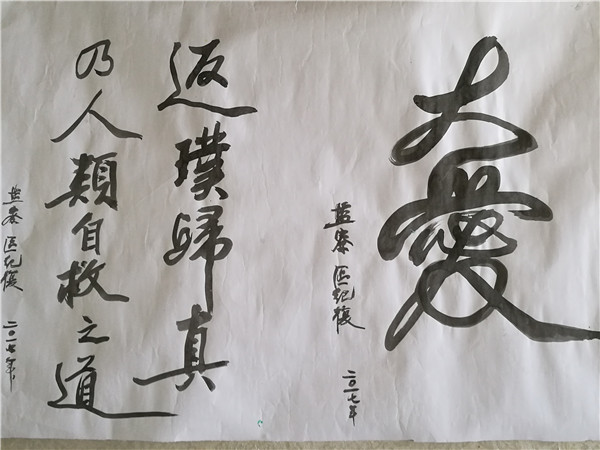 大愛
盐寮 区纪復 二〇一七年
返璞歸真
乃人類自救之道
盐寮 区纪復 二〇一七年